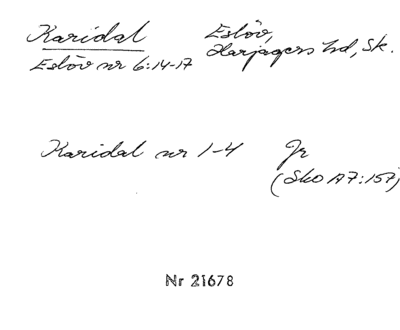 Karidal Eslöv,
Eslöv nr 6:14-17 Harjagers hd, Sk.
Karidal nr 1-4 Jr
(SkO A7:157)
Nr 21678